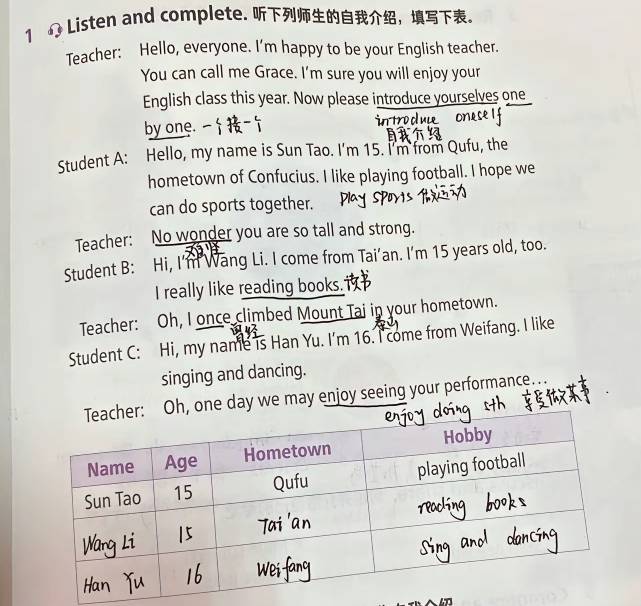 1 Listen and complete. 听下列师生的自我介绍，填写下表。
Teacher: Hello, everyone. I'm happy to be your English teacher.
You can call me Grace. I'm sure you will enjoy your
English class this year. Now please introduce yourselves one
by one. 一个接一个 introduce oneself
自我介绍
Student A: Hello, my name is Sun Tao. I'm 15. I'm from Qufu, the
hometown of Confucius. I like playing football. I hope we
can do sports together. play sports 做运动
Teacher: No wonder you are so tall and strong.
难怪
Student B: Hi, I'm Wang Li. I come from Tai'an. I'm 15 years old, too.
I really like reading books. 读书
Teacher: Oh, I once climbed Mount Tai in your hometown.
曾经 泰山
Student C: Hi, my name is Han Yu. I'm 16. I come from Weifang. I like
singing and dancing.
Teacher: Oh, one day we may enjoy seeing your performance…
enjoy doing sth 享受做某事
Name Age Hometown Hobby
Sun Tao 15 Qufu playing football
Wang Li 15 Tai'an reading books
Han Yu 16 Weifang Sing and dancing